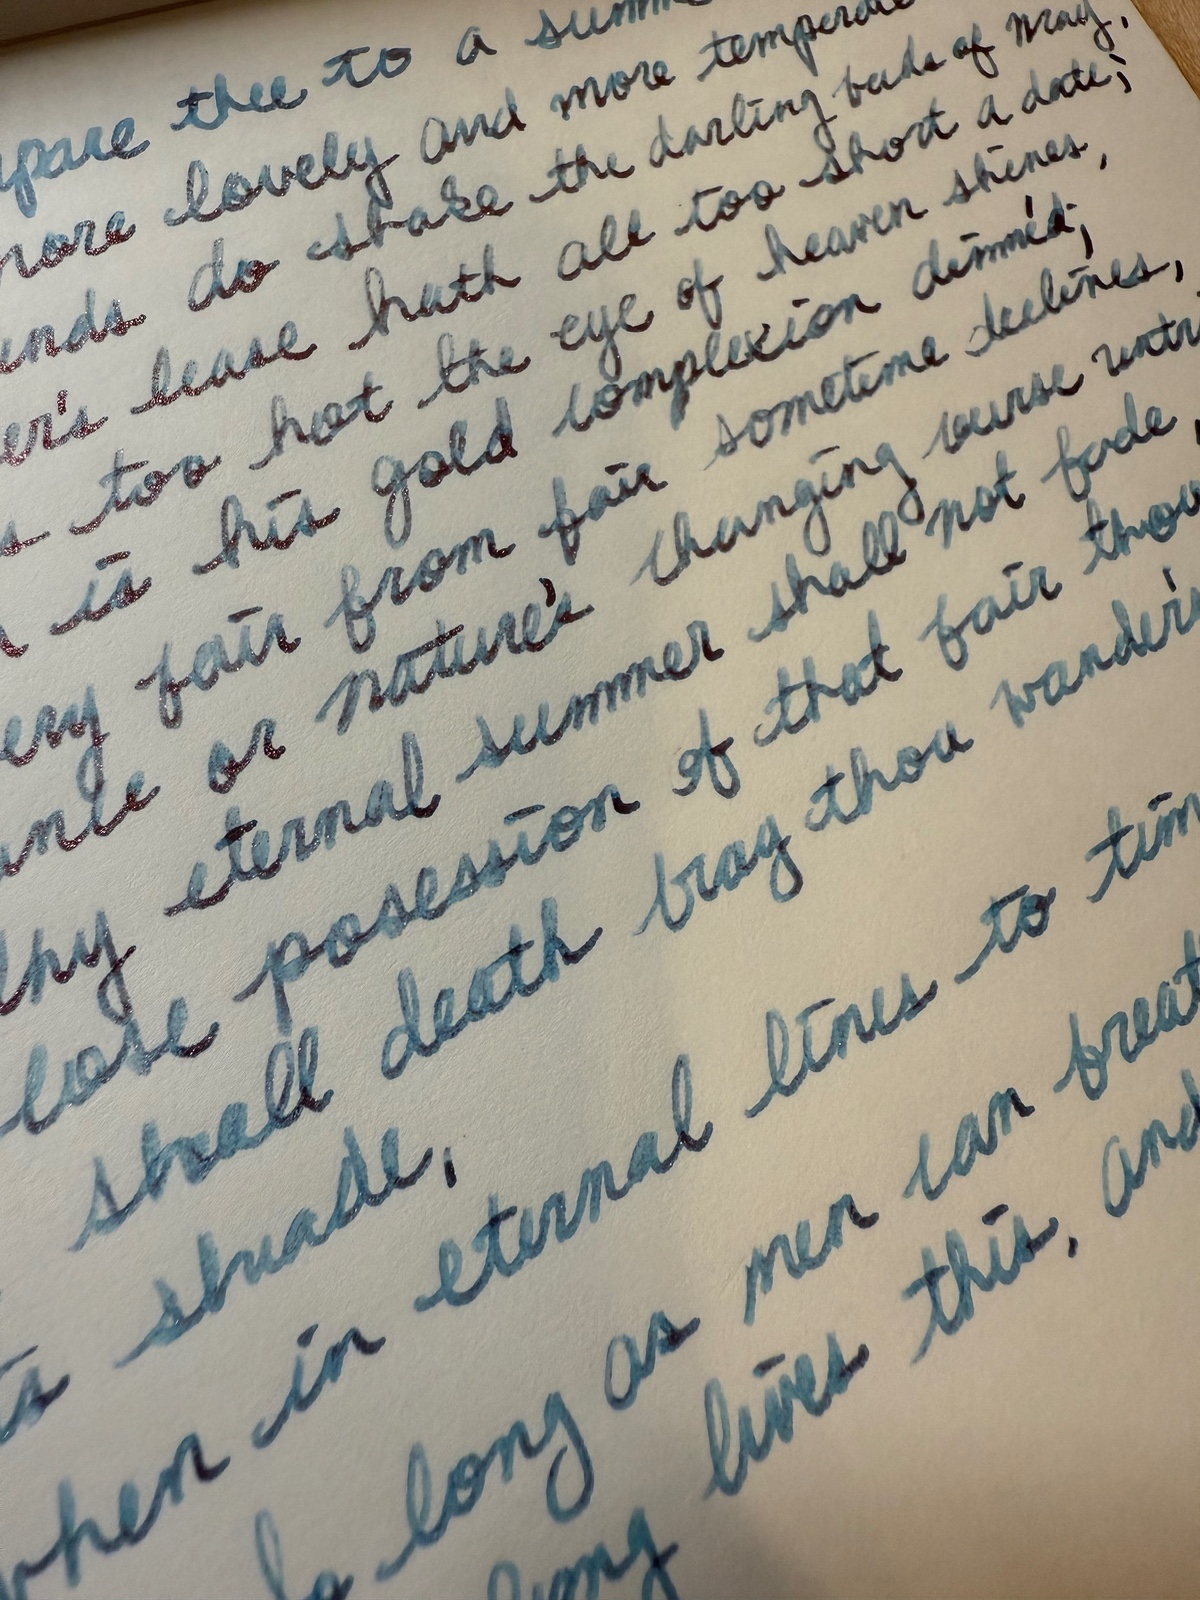 pare thee to a summe
more lovely and more temperate
inds do shake the darling buds of May,
er's lease hath all too short a date;
s too hot the eye of heaven shines,
n is his gold complexion dimm'd;
ery fair from fair sometime declines,
ance or nature's changing course untri
thy eternal summer shall not fade,
lose posession of that fair thou
shall death brag thou wander's
ts shade,
when in eternal lines to tim
So long as men can breat
long lives this, and